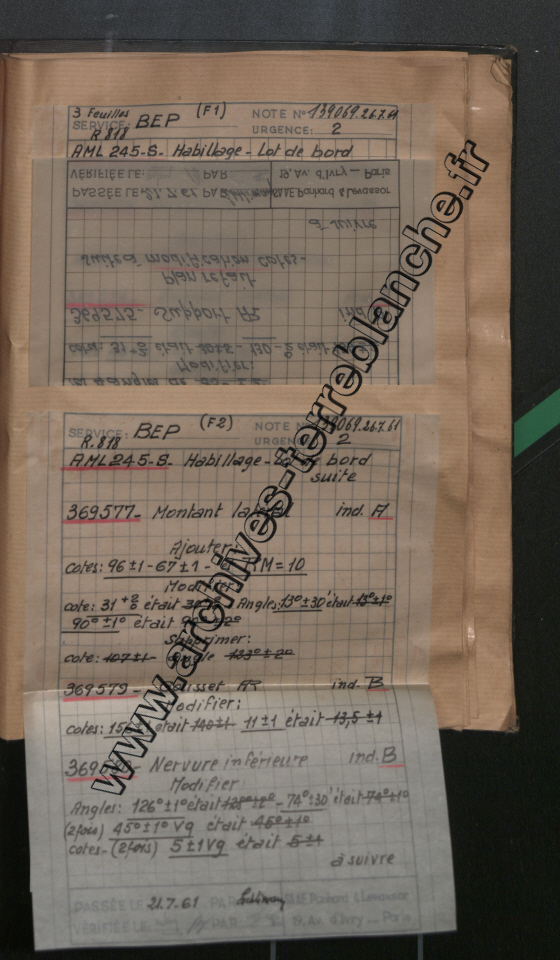 3 Feuilles (F1) NOTE N° 139069.26.7.61
SERVICE: BEP
R.818 URGENCE: 2
AML 245-S- Habillage - Lot de bord
VÉRIFIÉE LE: PAR 19, Av. d'Ivry — Paris
PASSÉE LE 21.7.61 PAR S.A.E. Panhard & Levassor
à suivre
suite à modification cotes-
Plan refait
369575- Support AR ind.
cote: 31 était - 130 - était
Modifier:
SERVICE: BEP (F2) NOTE N° 139069.26.7.61
R.818 URGENCE 2
AML 245-S- Habillage - Lot de bord
suite
369577- Montant ind. A
Ajouter:
cotes: 96 ±1 - 67 ±1 - RM = 10
Modifier:
cote: 31 +2 0 était Angles: 13°±30' était 13°±1°
90°±1° était
Supprimer:
cote: 107±1 - Angle 123°±2°
369579- Gousset AR ind. B
Modifier:
cotes: était 140±1 11±1 était 13,5±1
Nervure inférieure ind. B
Modifier
Angles: 126°±1° était - 74°±30' était 74°±1°
(2 fois) 45°±1° Vg était 45°±1°
cotes-(2 fois) 5±1 Vg était 5±1
à suivre
PASSÉE LE 21.7.61 PAR S.A.E. Panhard & Levassor
VÉRIFIÉE LE: PAR 19, Av. d'Ivry — Paris
www.archives-terreblanche.fr